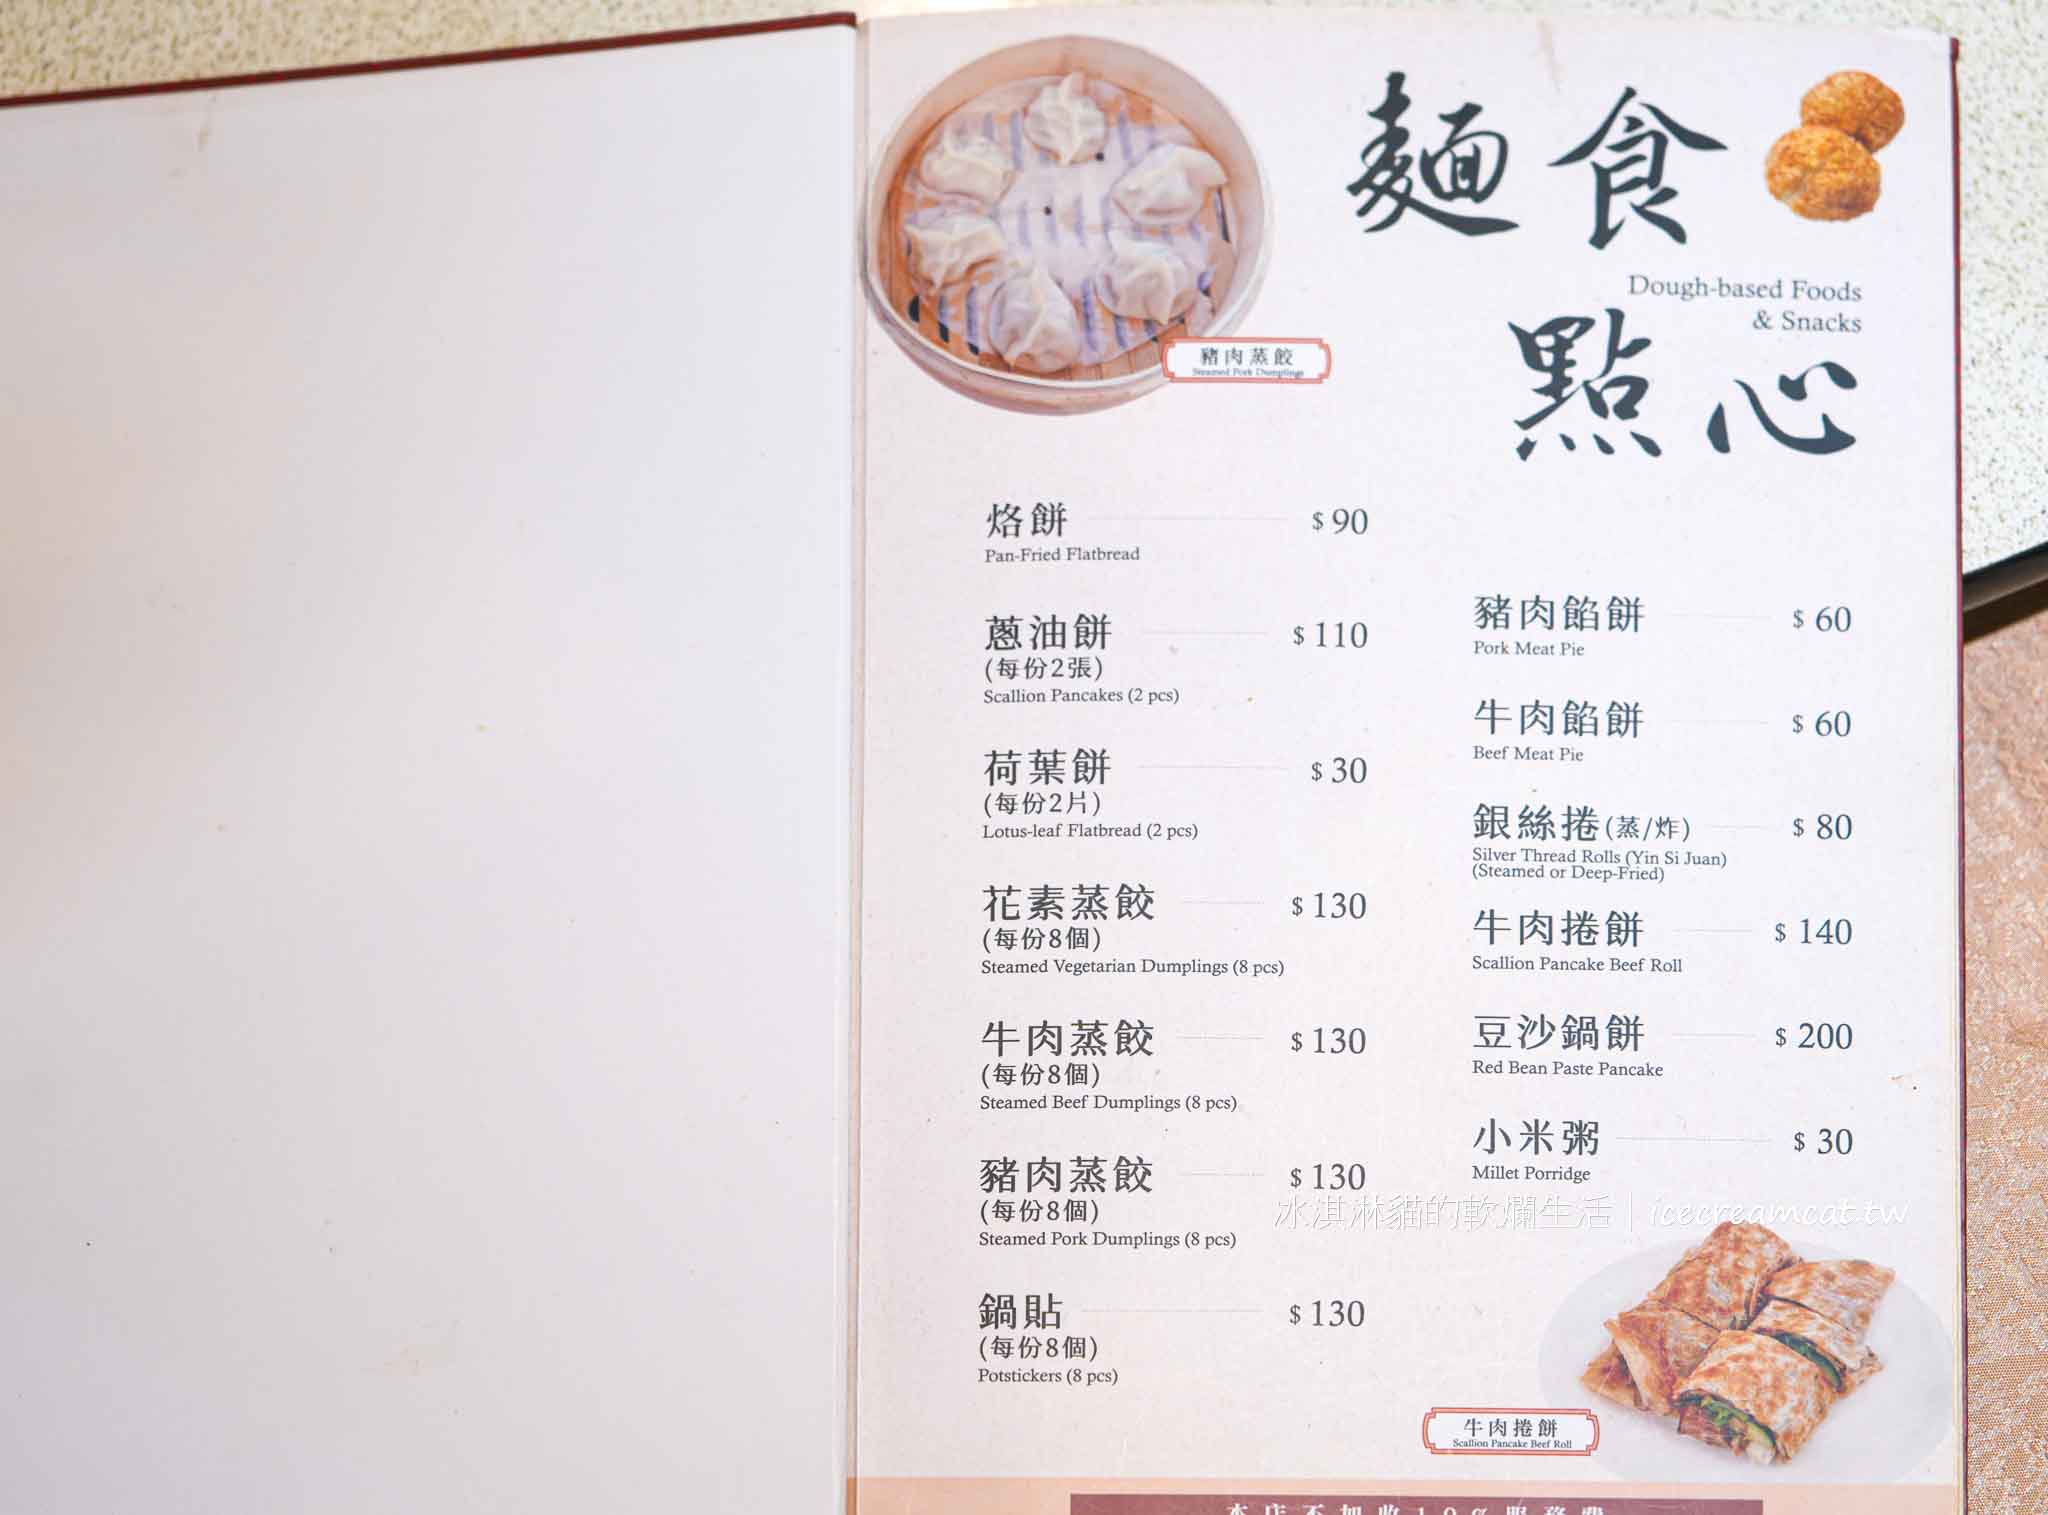 麵食
Dough-based Foods
& Snacks
點心
豬肉蒸餃
Steamed Pork Dumplings
烙餅 $ 90
Pan-Fried Flatbread
蔥油餅 $ 110
(每份2張)
Scallion Pancakes (2 pcs)
荷葉餅 $ 30
(每份2片)
Lotus-leaf Flatbread (2 pcs)
花素蒸餃 $ 130
(每份8個)
Steamed Vegetarian Dumplings (8 pcs)
牛肉蒸餃 $ 130
(每份8個)
Steamed Beef Dumplings (8 pcs)
豬肉蒸餃 $ 130
(每份8個)
Steamed Pork Dumplings (8 pcs)
鍋貼 $ 130
(每份8個)
Potstickers (8 pcs)
豬肉餡餅 $ 60
Pork Meat Pie
牛肉餡餅 $ 60
Beef Meat Pie
銀絲捲(蒸/炸) $ 80
Silver Thread Rolls (Yin Si Juan)
(Steamed or Deep-Fried)
牛肉捲餅 $ 140
Scallion Pancake Beef Roll
豆沙鍋餅 $ 200
Red Bean Paste Pancake
小米粥 $ 30
Millet Porridge
冰淇淋貓的軟爛生活 | icecreamcat.tw
牛肉捲餅
Scallion Pancake Beef Roll
本店不加收10%服務費